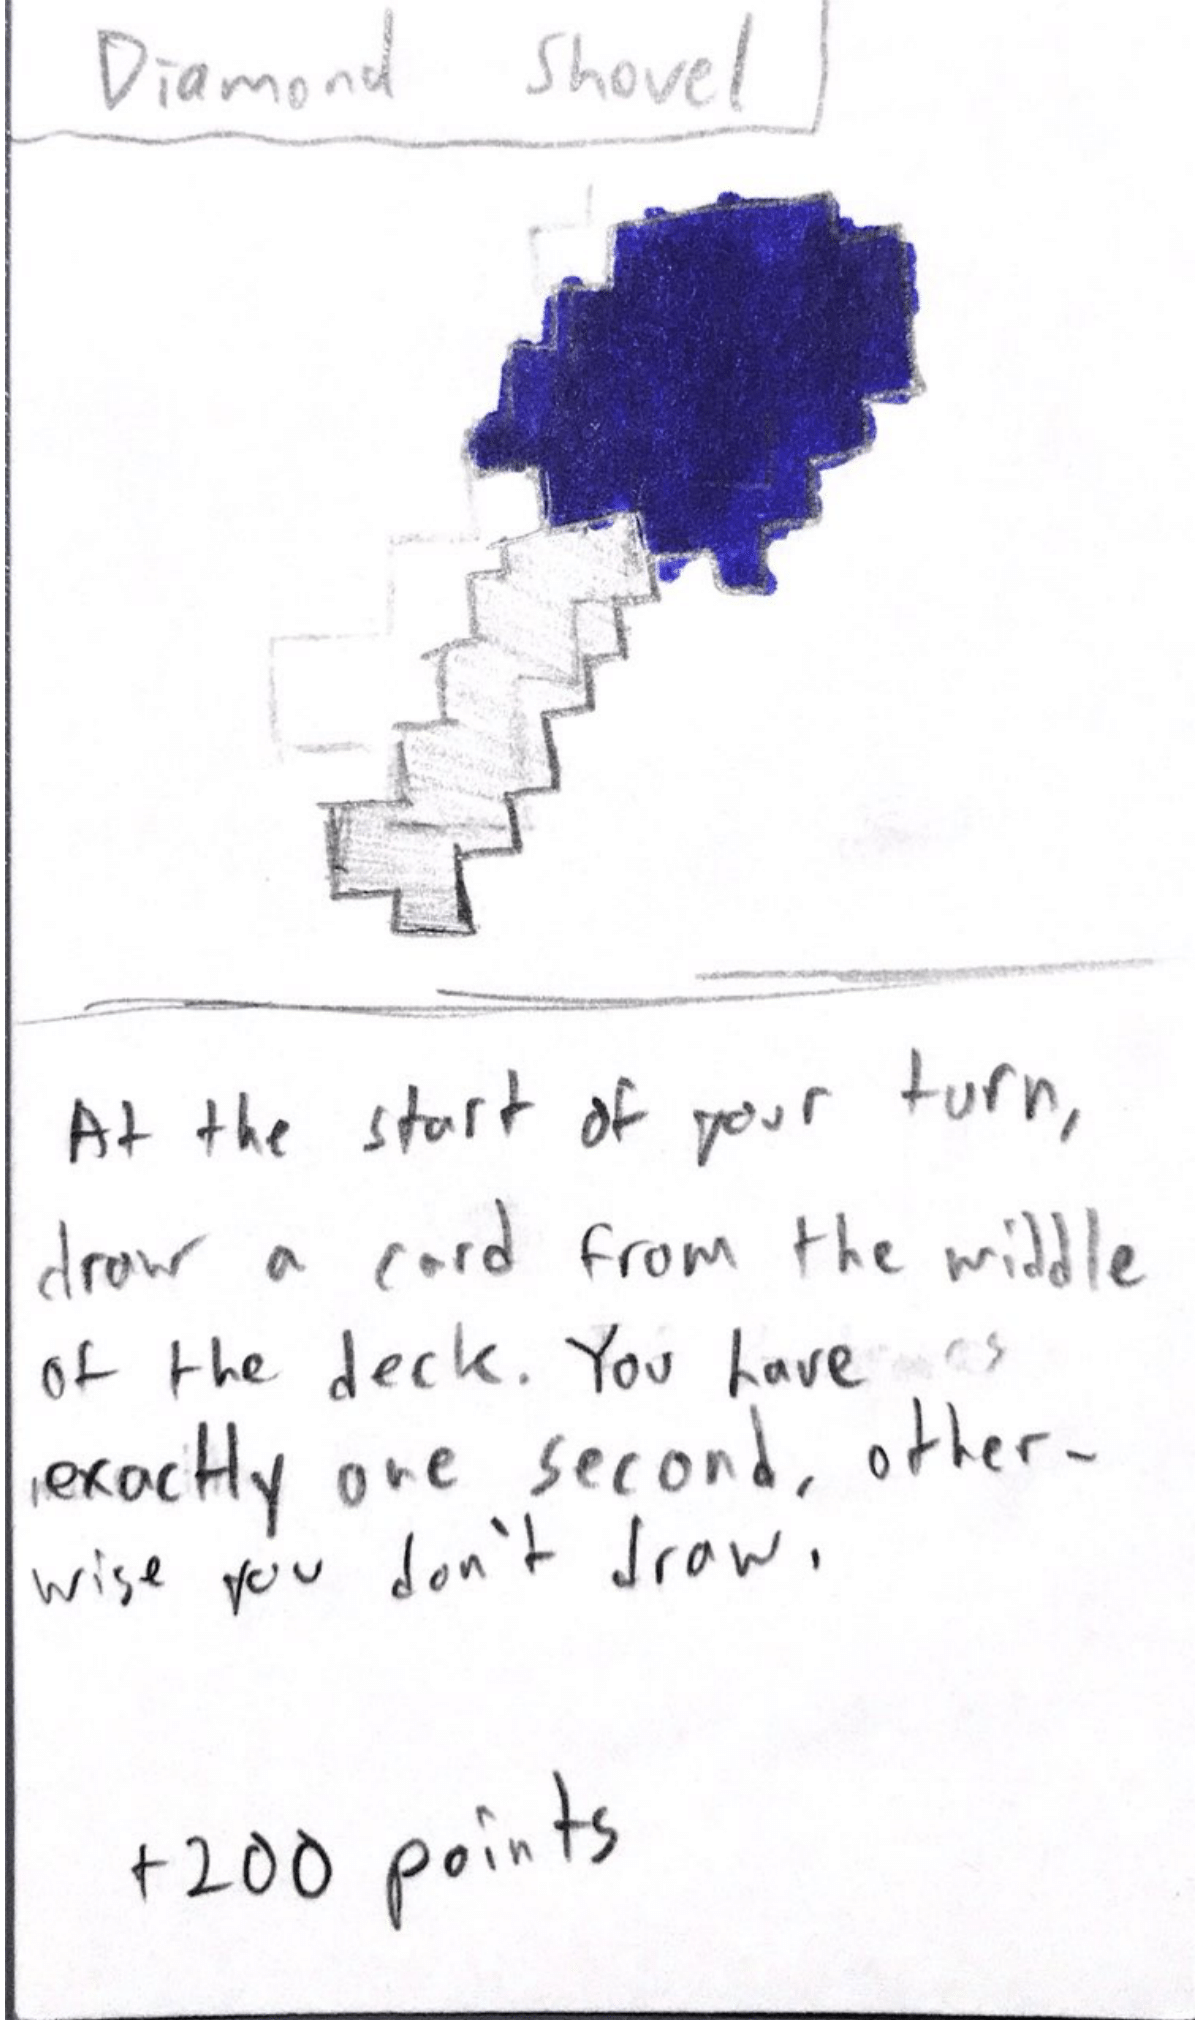 Diamond Shovel
At the start of your turn,
draw a card from the middle
of the deck. You have
exactly one second, other-
wise you don't draw.
+200 points